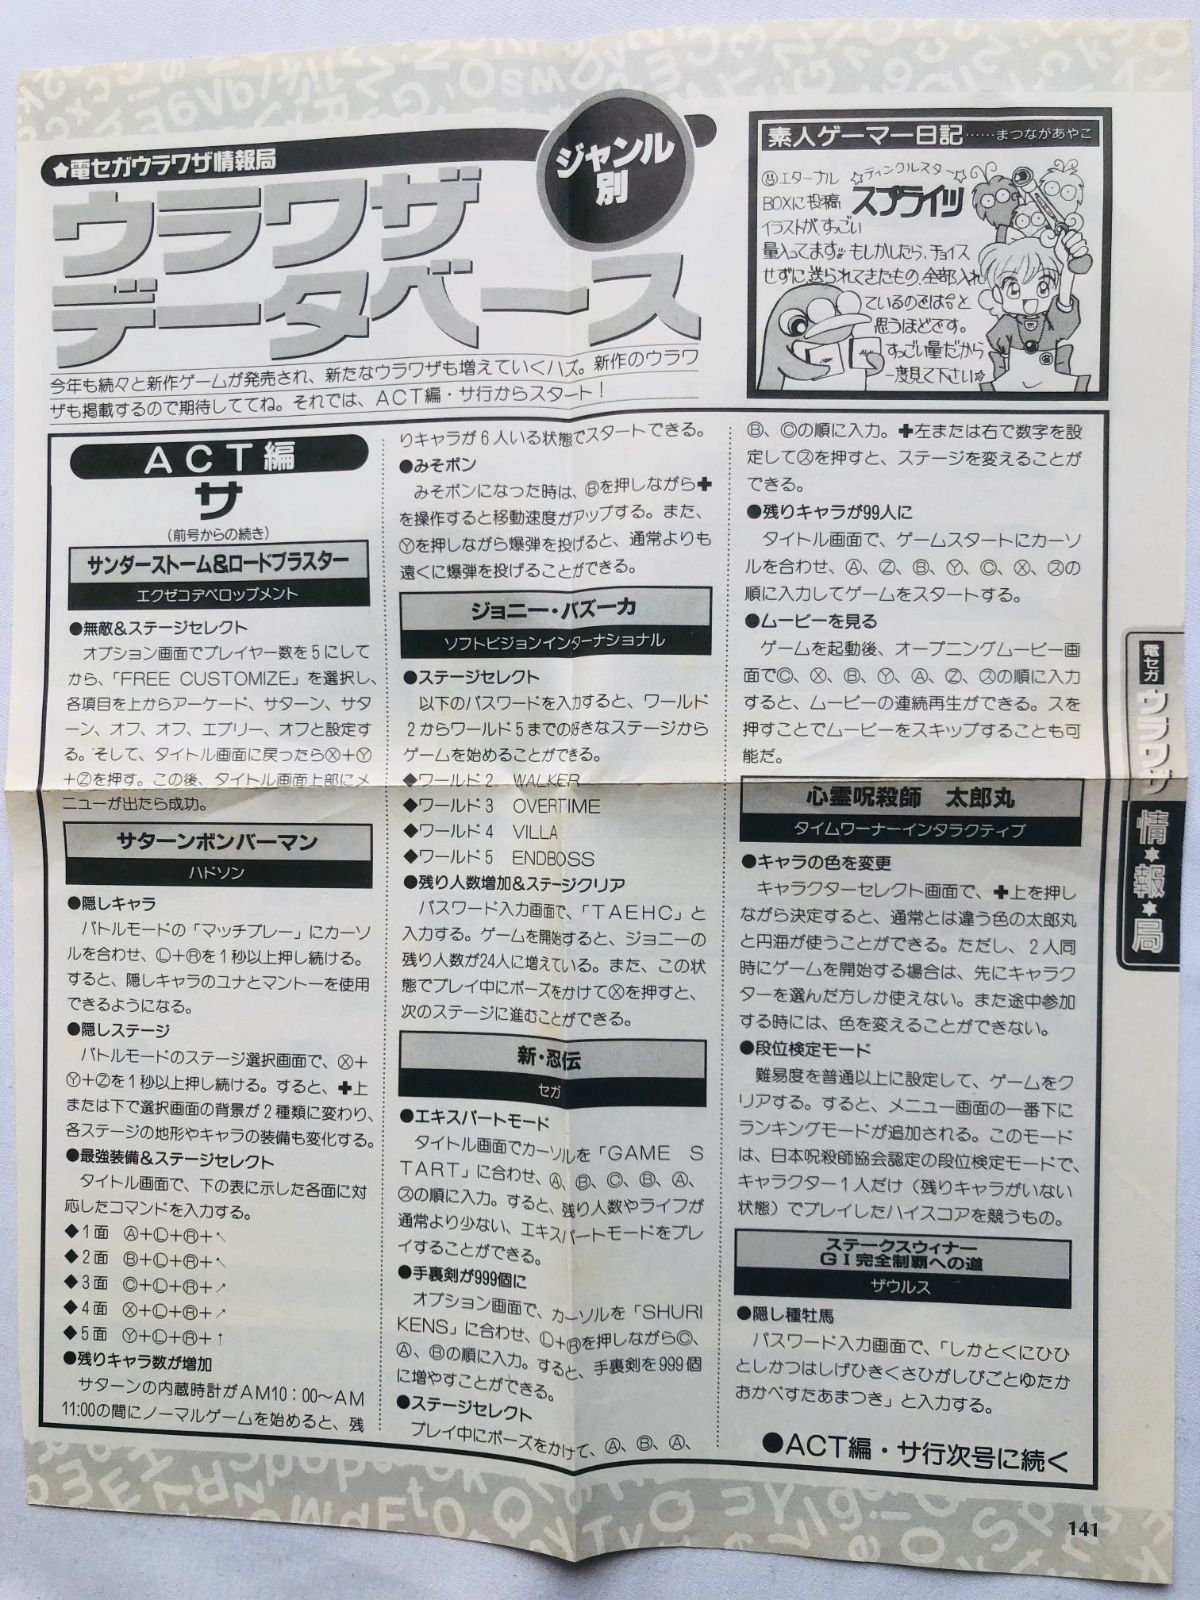 ★電セガウラワザ情報局
ウラワザ
データベース
ジャンル
別
今年も続々と新作ゲームが発売され、新たなウラワザも増えていくハズ。新作のウラワ
ザも掲載するので期待しててね。それでは、ACT編・サ行からスタート!
素人ゲーマー日記……まつながあやこ
エターナル
BOXに投稿
イラストが、すっごい
量入ってます!!もしかしたら、チョイス
せずに、送られてきたもの、全部入れ
ているのではと
思うほどです。
すっごい量だから
一度見て下さい☆
☆ティンクルスター☆
スプライツ
ACT編
サ
(前号からの続き)
サンダーストーム&ロードブラスター
エクゼコデベロップメント
●無敵&ステージセレクト
オプション画面でプレイヤー数を5にして
から、「FREE CUSTOMIZE」を選択し、
各項目を上からアーケード、サターン、サタ
ーン、オフ、オフ、エブリー、オフと設定す
る。そして、タイトル画面に戻ったらⓍ+Ⓨ
+Ⓩを押す。この後、タイトル画面上部にメ
ニューが出たら成功。
サターンボンバーマン
ハドソン
●隠しキャラ
バトルモードの「マッチプレー」にカーソ
ルを合わせ、Ⓛ+Ⓡを1秒以上押し続ける。
すると、隠しキャラのユナとマントーを使用
できるようになる。
●隠しステージ
バトルモードのステージ選択画面で、Ⓧ+
Ⓨ+Ⓩを1秒以上押し続ける。すると、✚上
または下で選択画面の背景が2種類に変わり、
各ステージの地形やキャラの装備も変化する。
●最強装備&ステージセレクト
タイトル画面で、下の表に示した各面に対
応したコマンドを入力する。
◆1面 Ⓐ+Ⓛ+Ⓡ+↖
◆2面 Ⓑ+Ⓛ+Ⓡ+↖
◆3面 Ⓒ+Ⓛ+Ⓡ+↗
◆4面 Ⓧ+Ⓛ+Ⓡ+↗
◆5面 Ⓨ+Ⓛ+Ⓡ+↑
●残りキャラ数が増加
サターンの内蔵時計がAM10:00〜AM
11:00の間にノーマルゲームを始めると、残
りキャラが6人いる状態でスタートできる。
●みそボン
みそボンになった時は、Ⓑを押しながら✚
を操作すると移動速度がアップする。また、
Ⓨを押しながら爆弾を投げると、通常よりも
遠くに爆弾を投げることができる。
ジョニー・バズーカ
ソフトビジョンインターナショナル
●ステージセレクト
以下のパスワードを入力すると、ワールド
2からワールド5までの好きなステージから
ゲームを始めることができる。
◆ワールド2 WALKER
◆ワールド3 OVERTIME
◆ワールド4 VILLA
◆ワールド5 ENDBOSS
●残り人数増加&ステージクリア
パスワード入力画面で、「TAEHC」と
入力する。ゲームを開始すると、ジョニーの
残り人数が24人に増えている。また、この状
態でプレイ中にポーズをかけてⓍを押すと、
次のステージに進むことができる。
新・忍伝
セガ
●エキスパートモード
タイトル画面でカーソルを「GAME S
TART」に合わせ、Ⓐ、Ⓑ、Ⓒ、Ⓑ、Ⓐ、
㋜の順に入力。すると、残り人数やライフが
通常より少ない、エキスパートモードをプレ
イすることができる。
●手裏剣が999個に
オプション画面で、カーソルを「SHURI
KENS」に合わせ、Ⓛ+Ⓡを押しながらⒸ、
Ⓐ、Ⓑの順に入力。すると、手裏剣を999個
に増やすことができる。
●ステージセレクト
プレイ中にポーズをかけて、Ⓐ、Ⓑ、Ⓐ、
Ⓑ、Ⓒの順に入力。✚左または右で数字を設
定して㋜を押すと、ステージを変えることが
できる。
●残りキャラが99人に
タイトル画面で、ゲームスタートにカーソ
ルを合わせ、Ⓐ、Ⓩ、Ⓑ、Ⓨ、Ⓒ、Ⓧ、㋜の
順に入力してゲームをスタートする。
●ムービーを見る
ゲームを起動後、オープニングムービー画
面でⒸ、Ⓧ、Ⓑ、Ⓨ、Ⓐ、Ⓩ、㋜の順に入力
すると、ムービーの連続再生ができる。スを
押すことでムービーをスキップすることも可
能だ。
心霊呪殺師 太郎丸
タイムワーナーインタラクティブ
●キャラの色を変更
キャラクターセレクト画面で、✚上を押し
ながら決定すると、通常とは違う色の太郎丸
と円海が使うことができる。ただし、2人同
時にゲームを開始する場合は、先にキャラク
ターを選んだ方しか使えない。また途中参加
する時には、色を変えることができない。
●段位検定モード
難易度を普通以上に設定して、ゲームをク
リアする。すると、メニュー画面の一番下に
ランキングモードが追加される。このモード
は、日本呪殺師協会認定の段位検定モードで、
キャラクター1人だけ(残りキャラがいない
状態)でプレイしたハイスコアを競うもの。
ステークスウィナー
GⅠ完全制覇への道
ザウルス
●隠し種牡馬
パスワード入力画面で、「しかとくにひひ
としかつはしげひきくさひがしびごとゆたか
おかべすたあまつき」と入力する。
●ACT編・サ行次号に続く
電セガ
ウラワザ
情★報★局
141